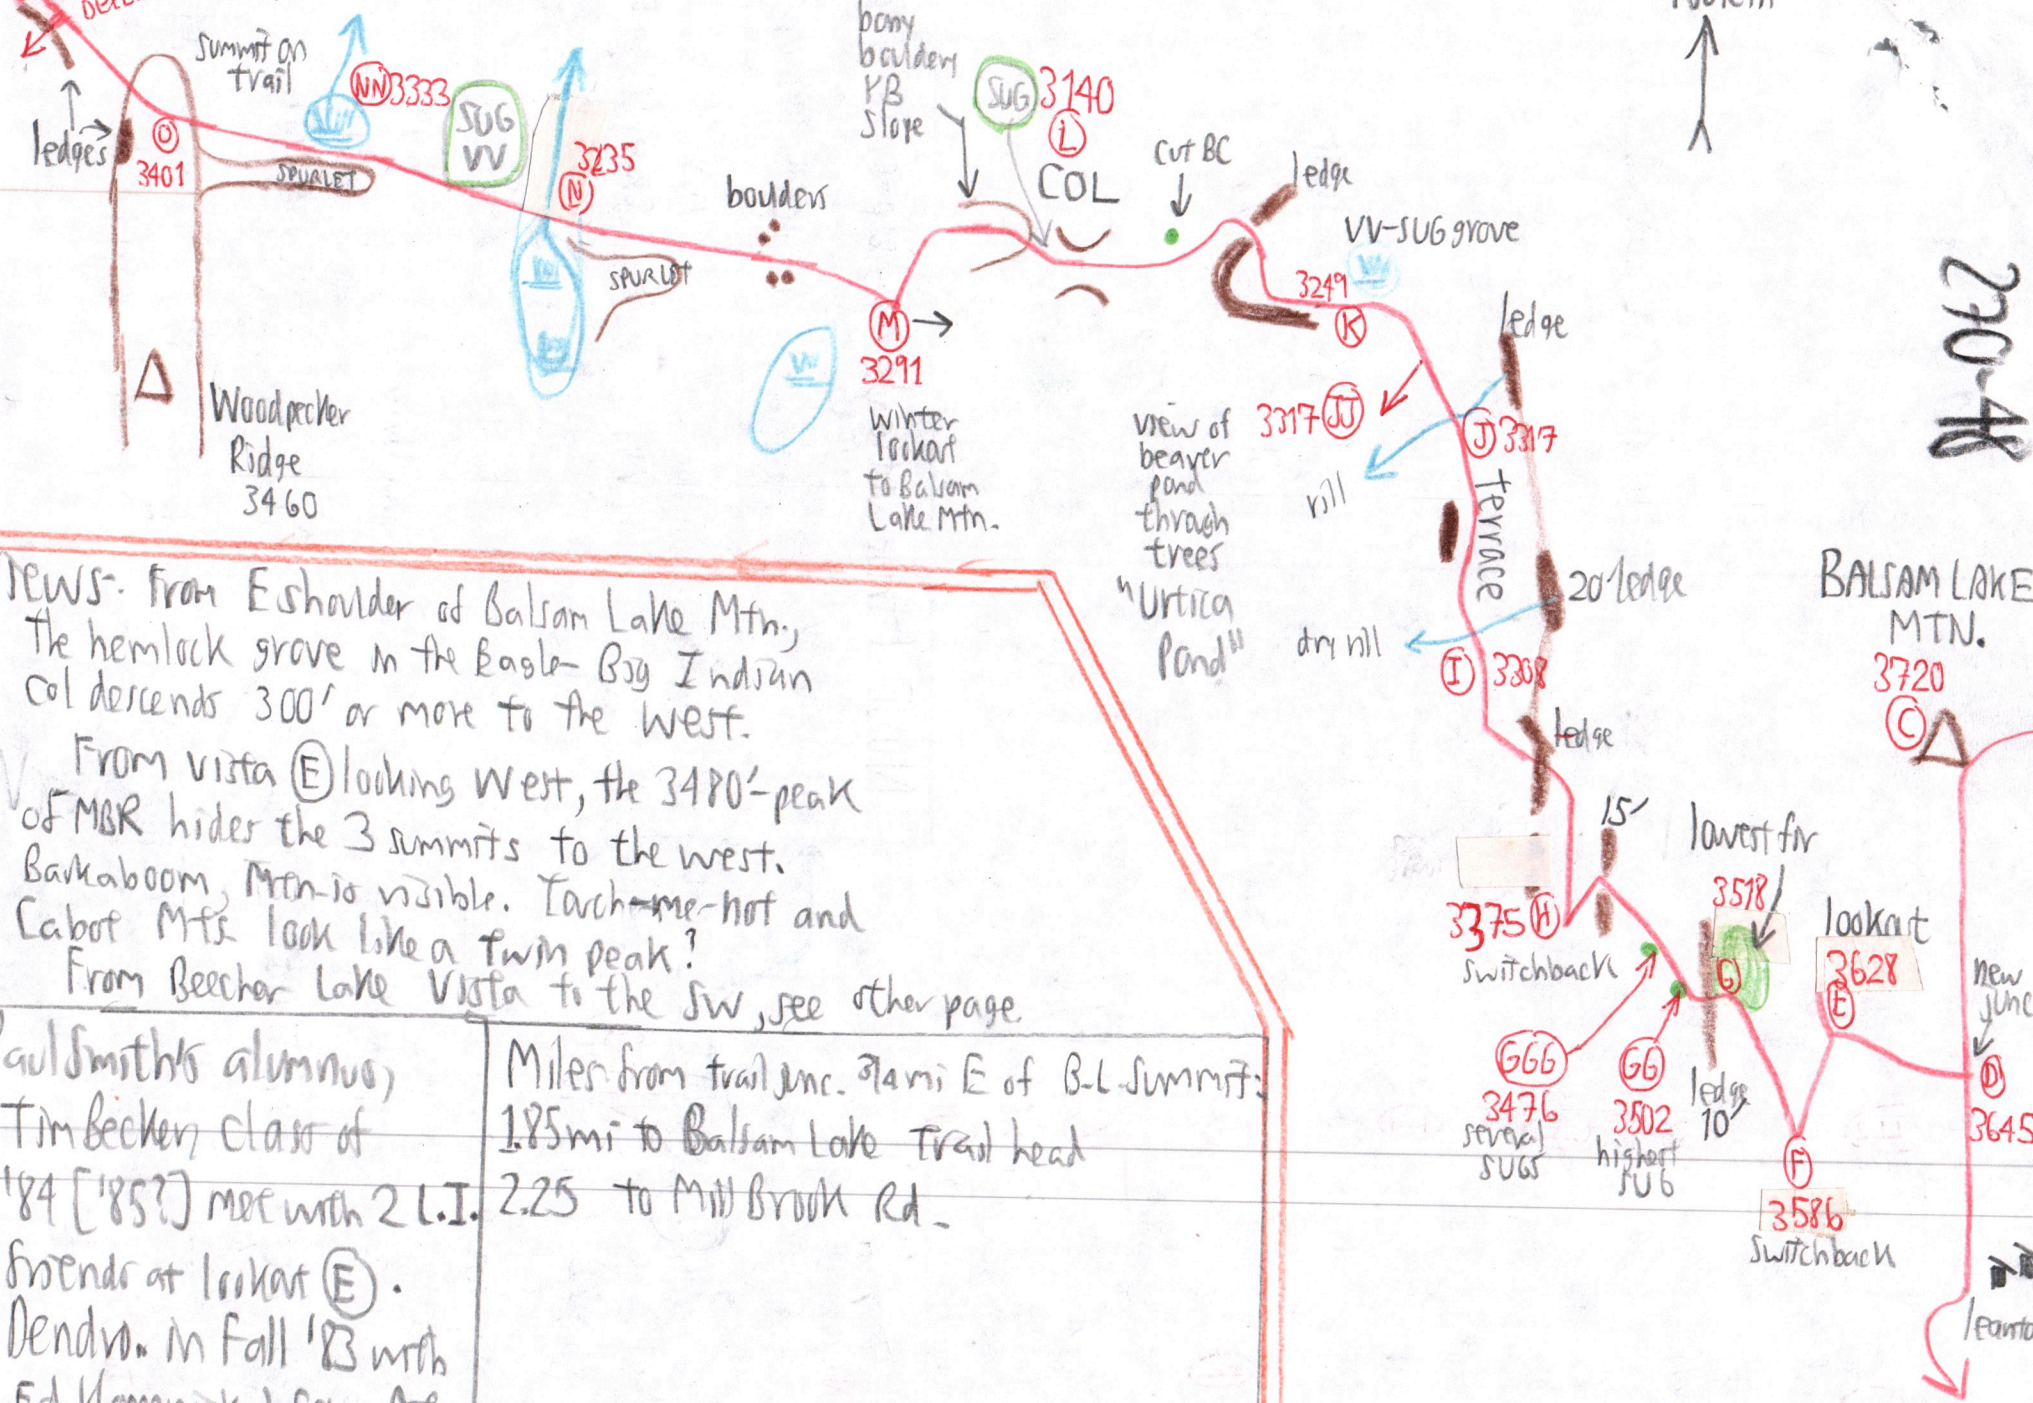 summit on
trail
NN 3333
ledges
O
3401
SPURLET
SUG
VV
3235
N
SPURLET
boulders
bony
bouldery
YB
slope
SUG
3140
L
COL
cut BC
ledge
VV-SUG grove
3249
K
M
3291
winter
lookout
to Balsam
Lake Mtn.
Woodpecker
Ridge
3460
view of
beaver
pond
through
trees
"Urtica
Pond"
3317 JJ
ledge
J 3317
rill
Terrace
20' ledge
dry rill
I 3308
ledge
270-48
BALSAM LAKE
MTN.
3720
C
15'
lowest fir
3518
lookout
3628
E
G
3375 H
switchback
new
junc
D
3645
GGG
3476
several
SUGS
GG
3502
highest
SUG
ledge
10'
F
3586
switchback
leanto
iews. From E shoulder of Balsam Lake Mtn.,
the hemlock grove in the Eagle-Big Indian
col descends 300' or more to the west.
From vista E looking West, the 3480'-peak
of MBR hides the 3 summits to the west.
Barkaboom Mtn is visible. Touch-me-not and
Cabot Mts. look like a twin peak?
From Beecher Lake Vista to the SW, see other page.
aul Smith's alumnus,
Tim Becker, class of
'84 ['85?] met with 2 L.I.
friends at lookout E.
Dendro. in Fall '83 with
Miles from trail junc. 3/4 mi E of B-L Summit:
1.85 mi to Balsam Lake Trail head
2.25 to Mill Brook Rd.